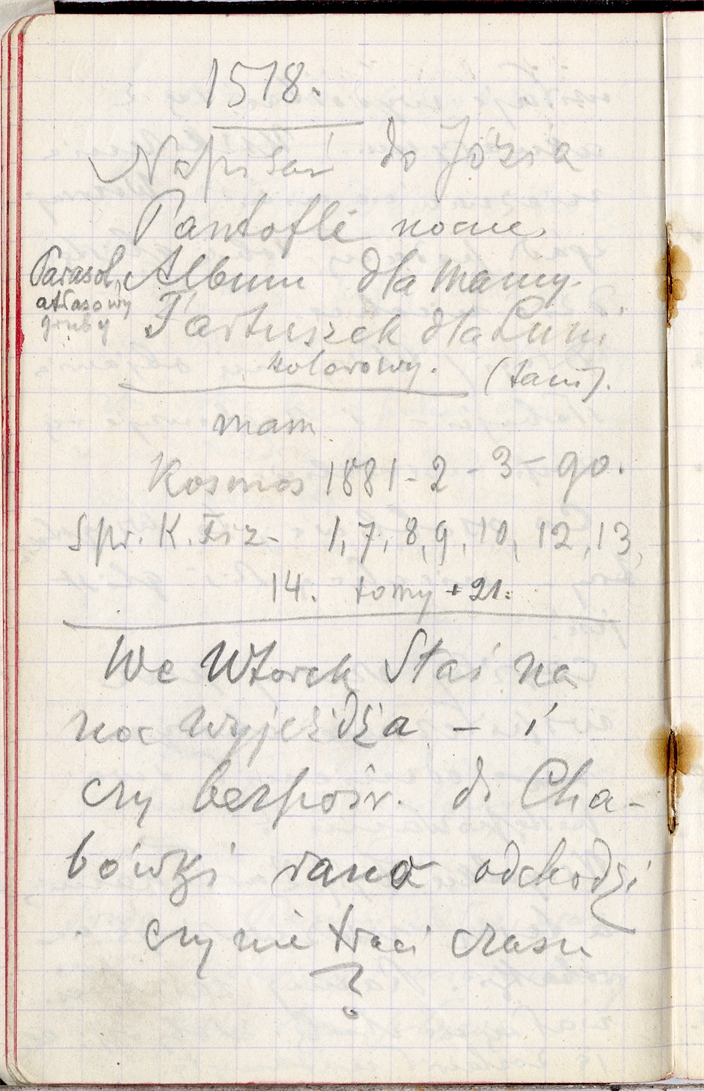 1518.
Napisać do Józia
Pantofle nocne
Parasol, Album dla mamy.
atłasowy
gruby
Fartuszek dla Luni
kolorowy. (tani).
mam
Kosmos 1881-2-3-go.
Spr. K. Fiz- 1, 7, 8, 9, 10, 12, 13,
14. tomy + 21.
We Wtorek Staś na
noc wyjeżdża – i
czy bezpośr. do Cha-
bówki rano odchodzi
czy nie traci czasu
?